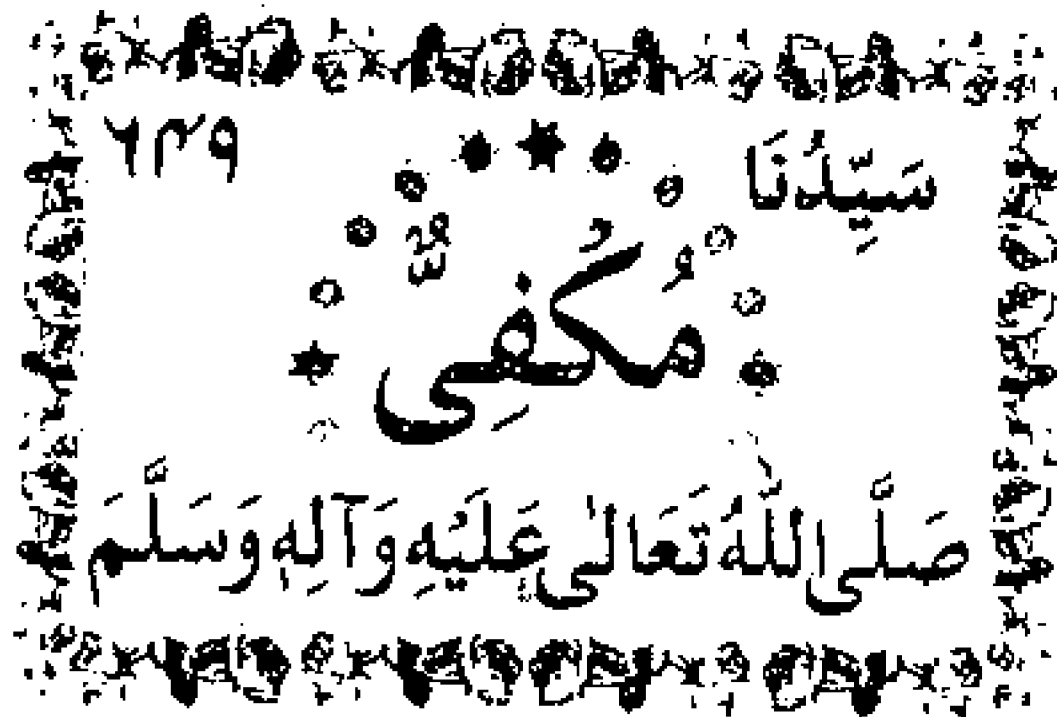 سَيِّدُنَا ٦٣٩
مُكْفِیٌّ
صَلَّى اللّٰهُ تَعَالٰى عَلَيْهِ وَآلِهٖ وَسَلَّمَ